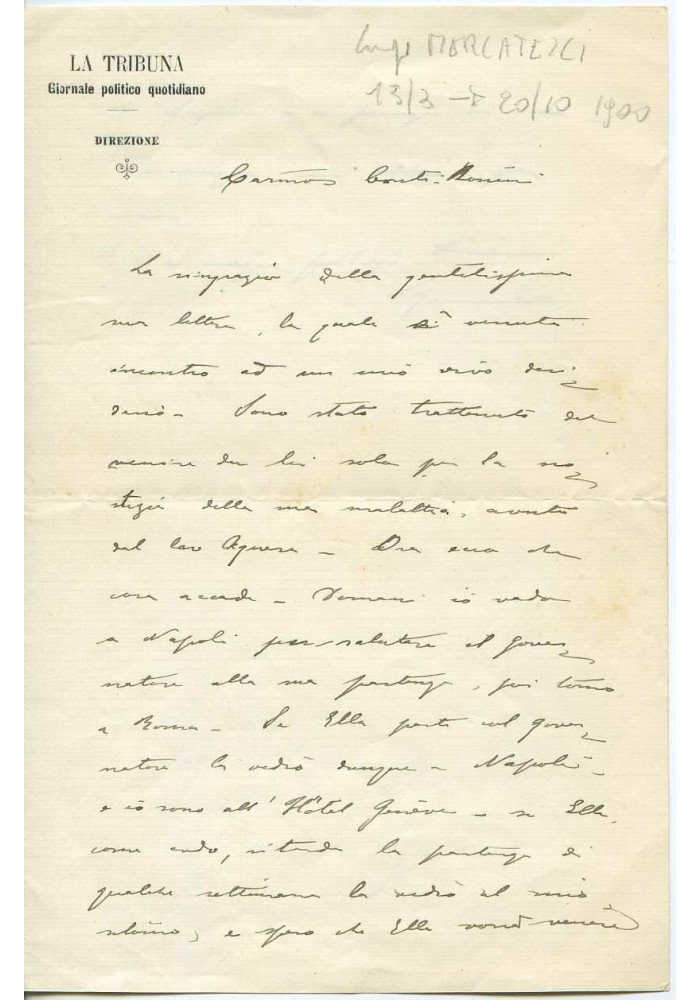 LA TRIBUNA
Giornale politico quotidiano
DIREZIONE
Luigi MERCATELLI
13/3 → 20/10 1900
Carissimo Conti-Rossini
La ringrazio della gentilissima
sua lettera, la quale è venuta
incontro ad un mio vivo desi-
derio - Sono stato trattenuto dal
venire da lei solo per la no-
tizia della sua malattia, avuta
dal Cav Agnesa - Ora ecco che
cosa accade - Domani io vado
a Napoli per salutare il Gover-
natore alla sua partenza, poi torno
a Roma - Se Ella parte col Gover-
natore la vedrò dunque a Napoli -
e io sono all' Hôtel Genève - se Ella,
come credo, ritarda la partenza di
qualche settimana la vedrò al mio
ritorno, e spero che Ella vorrà venire